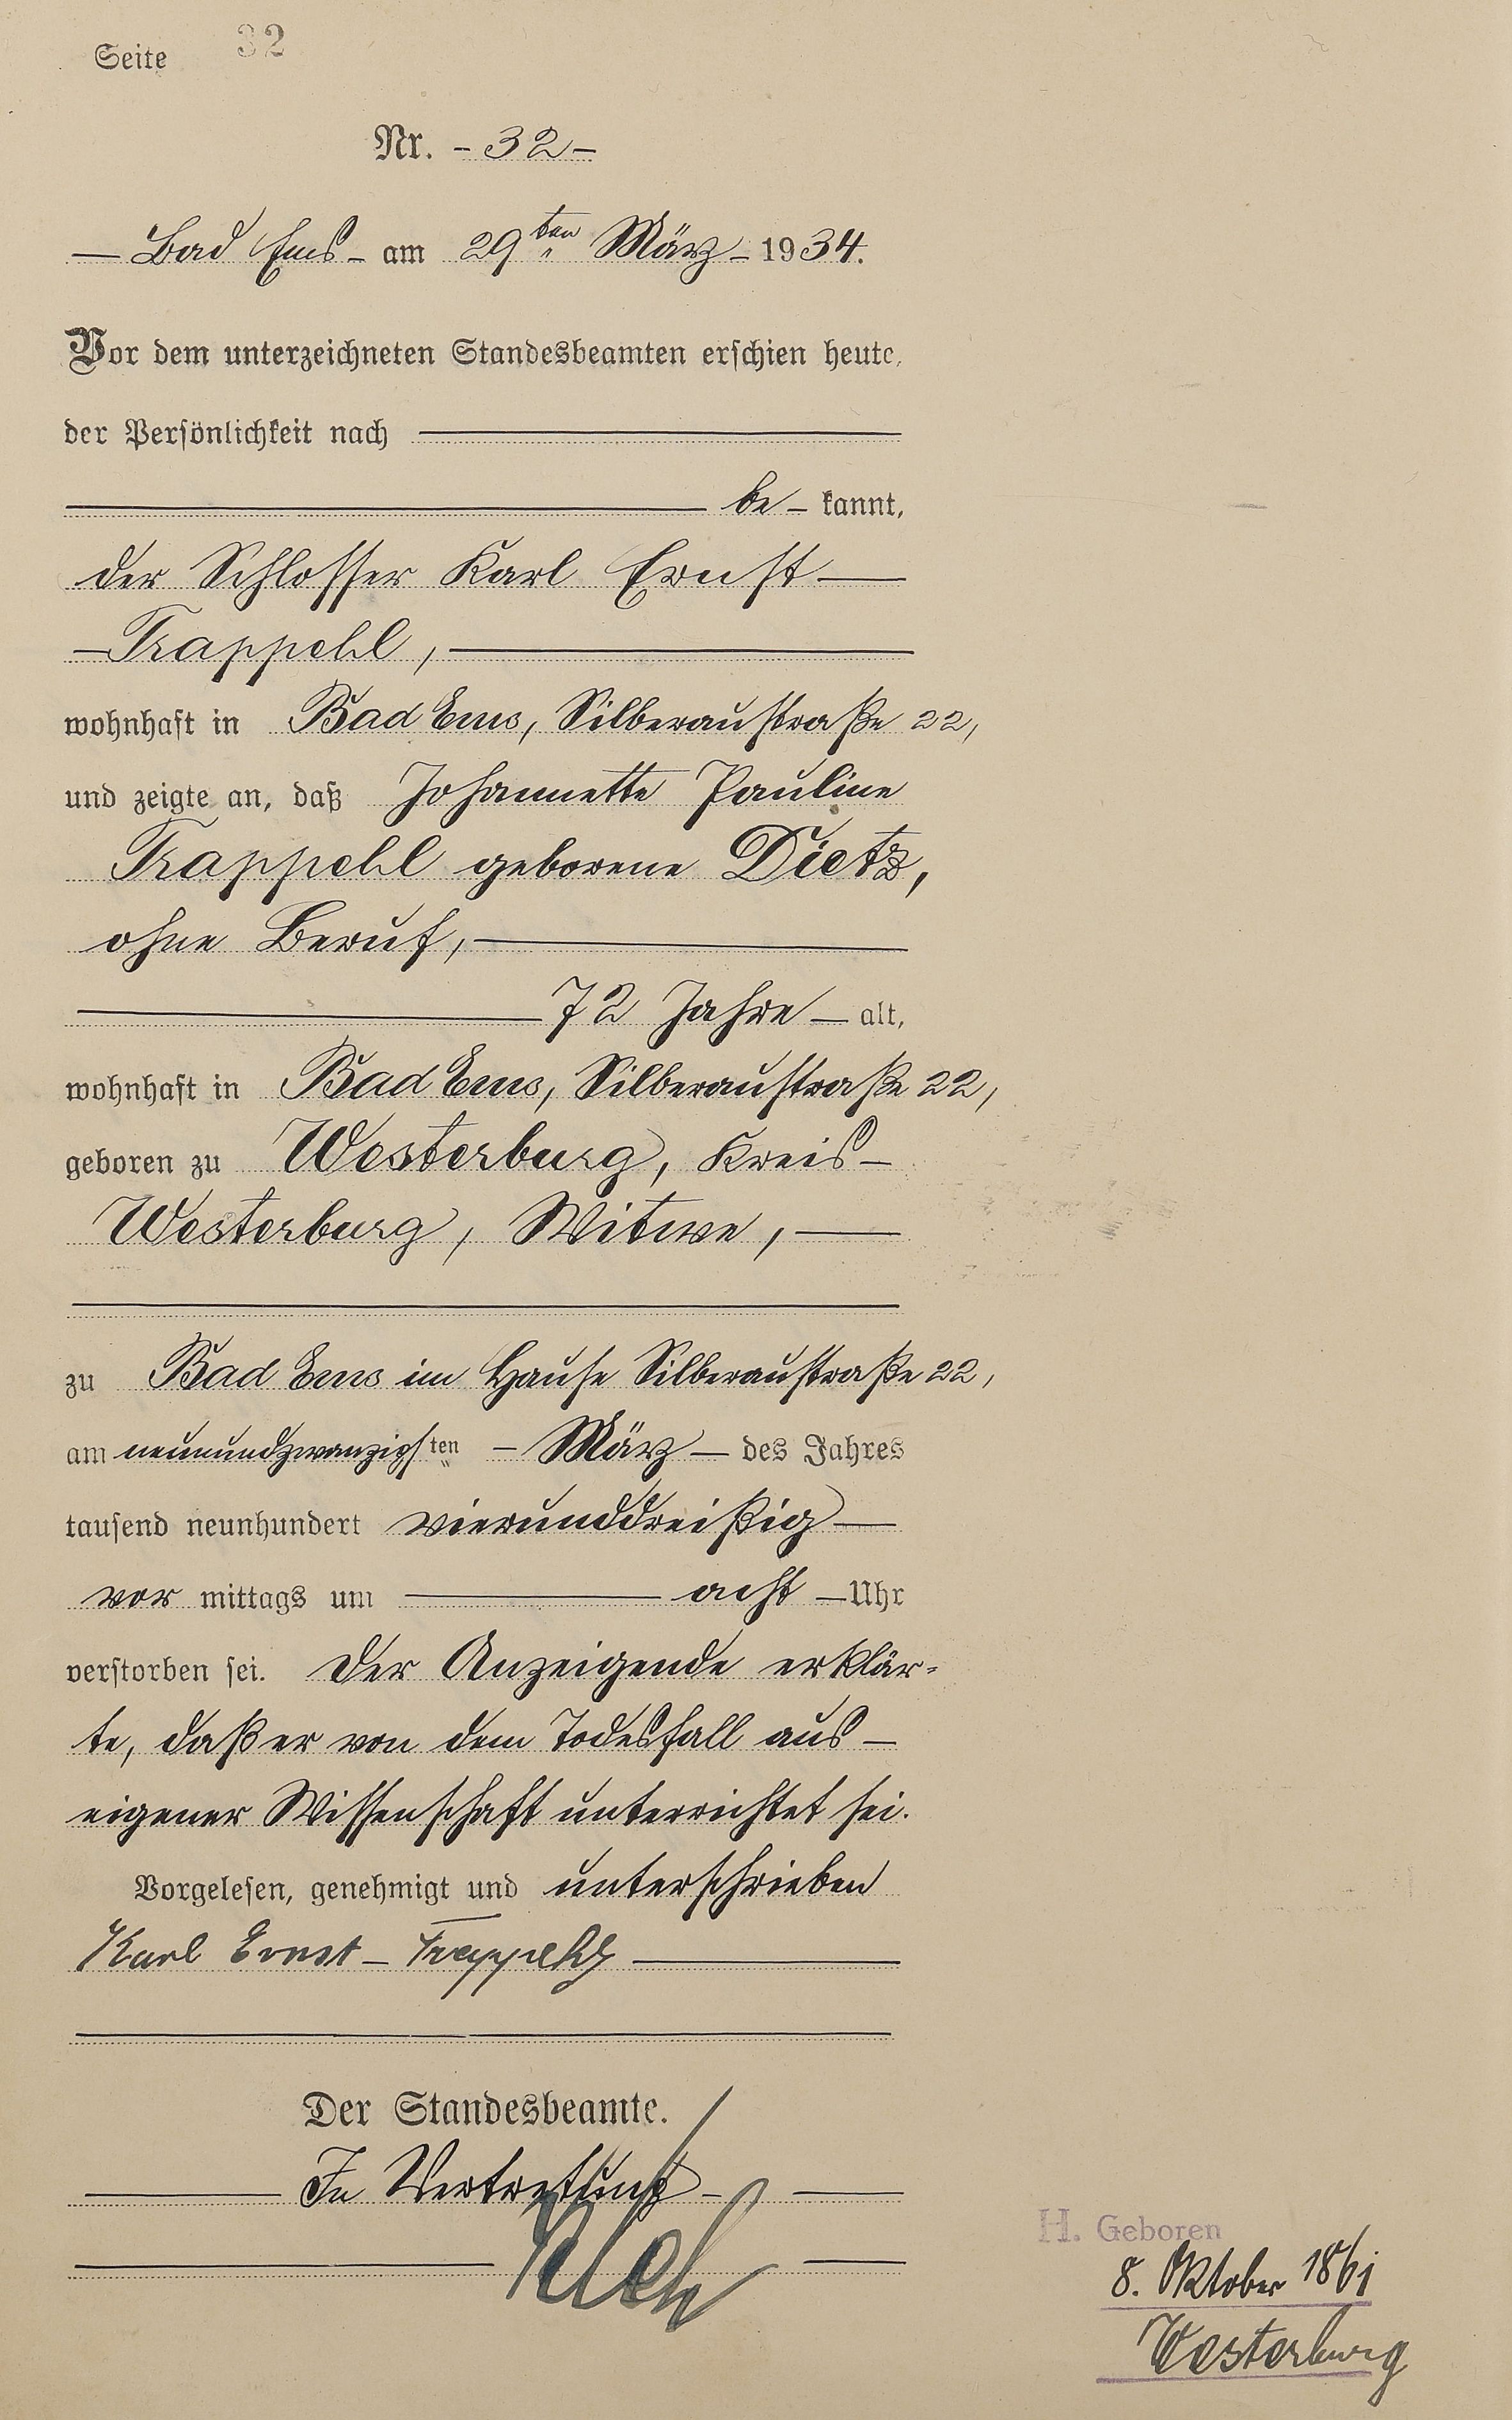 Seite 32
Nr. - 32 -
— Bad Ems - am 29ten März - 1934.
Vor dem unterzeichneten Standesbeamten erschien heute,
der Persönlichkeit nach
be - kannt,
der Schlosser Karl Ernst —
— Trappehl, —
wohnhaft in Bad Ems, Silberaustraße 22,
und zeigte an, daß Johannette Pauline
Trappehl geborene Dietz,
ohne Beruf, —
— 72 Jahre — alt,
wohnhaft in Bad Ems, Silberaustraße 22,
geboren zu Westerburg, Kreis —
Westerburg, Witwe, —
zu Bad Ems im Hause Silberaustraße 22,
am neunundzwanzigsten - März — des Jahres
tausend neunhundert vierunddreißig —
vor mittags um — acht — Uhr
verstorben sei. Der Anzeigende erklär-
te, daß er von dem Todesfall aus —
eigener Wissenschaft unterrichtet sei.
Vorgelesen, genehmigt und unterschrieben
Karl Ernst - Trappehl —
Der Standesbeamte.
In Vertretung -
H. Geboren
8. Oktober 1861
Westerburg